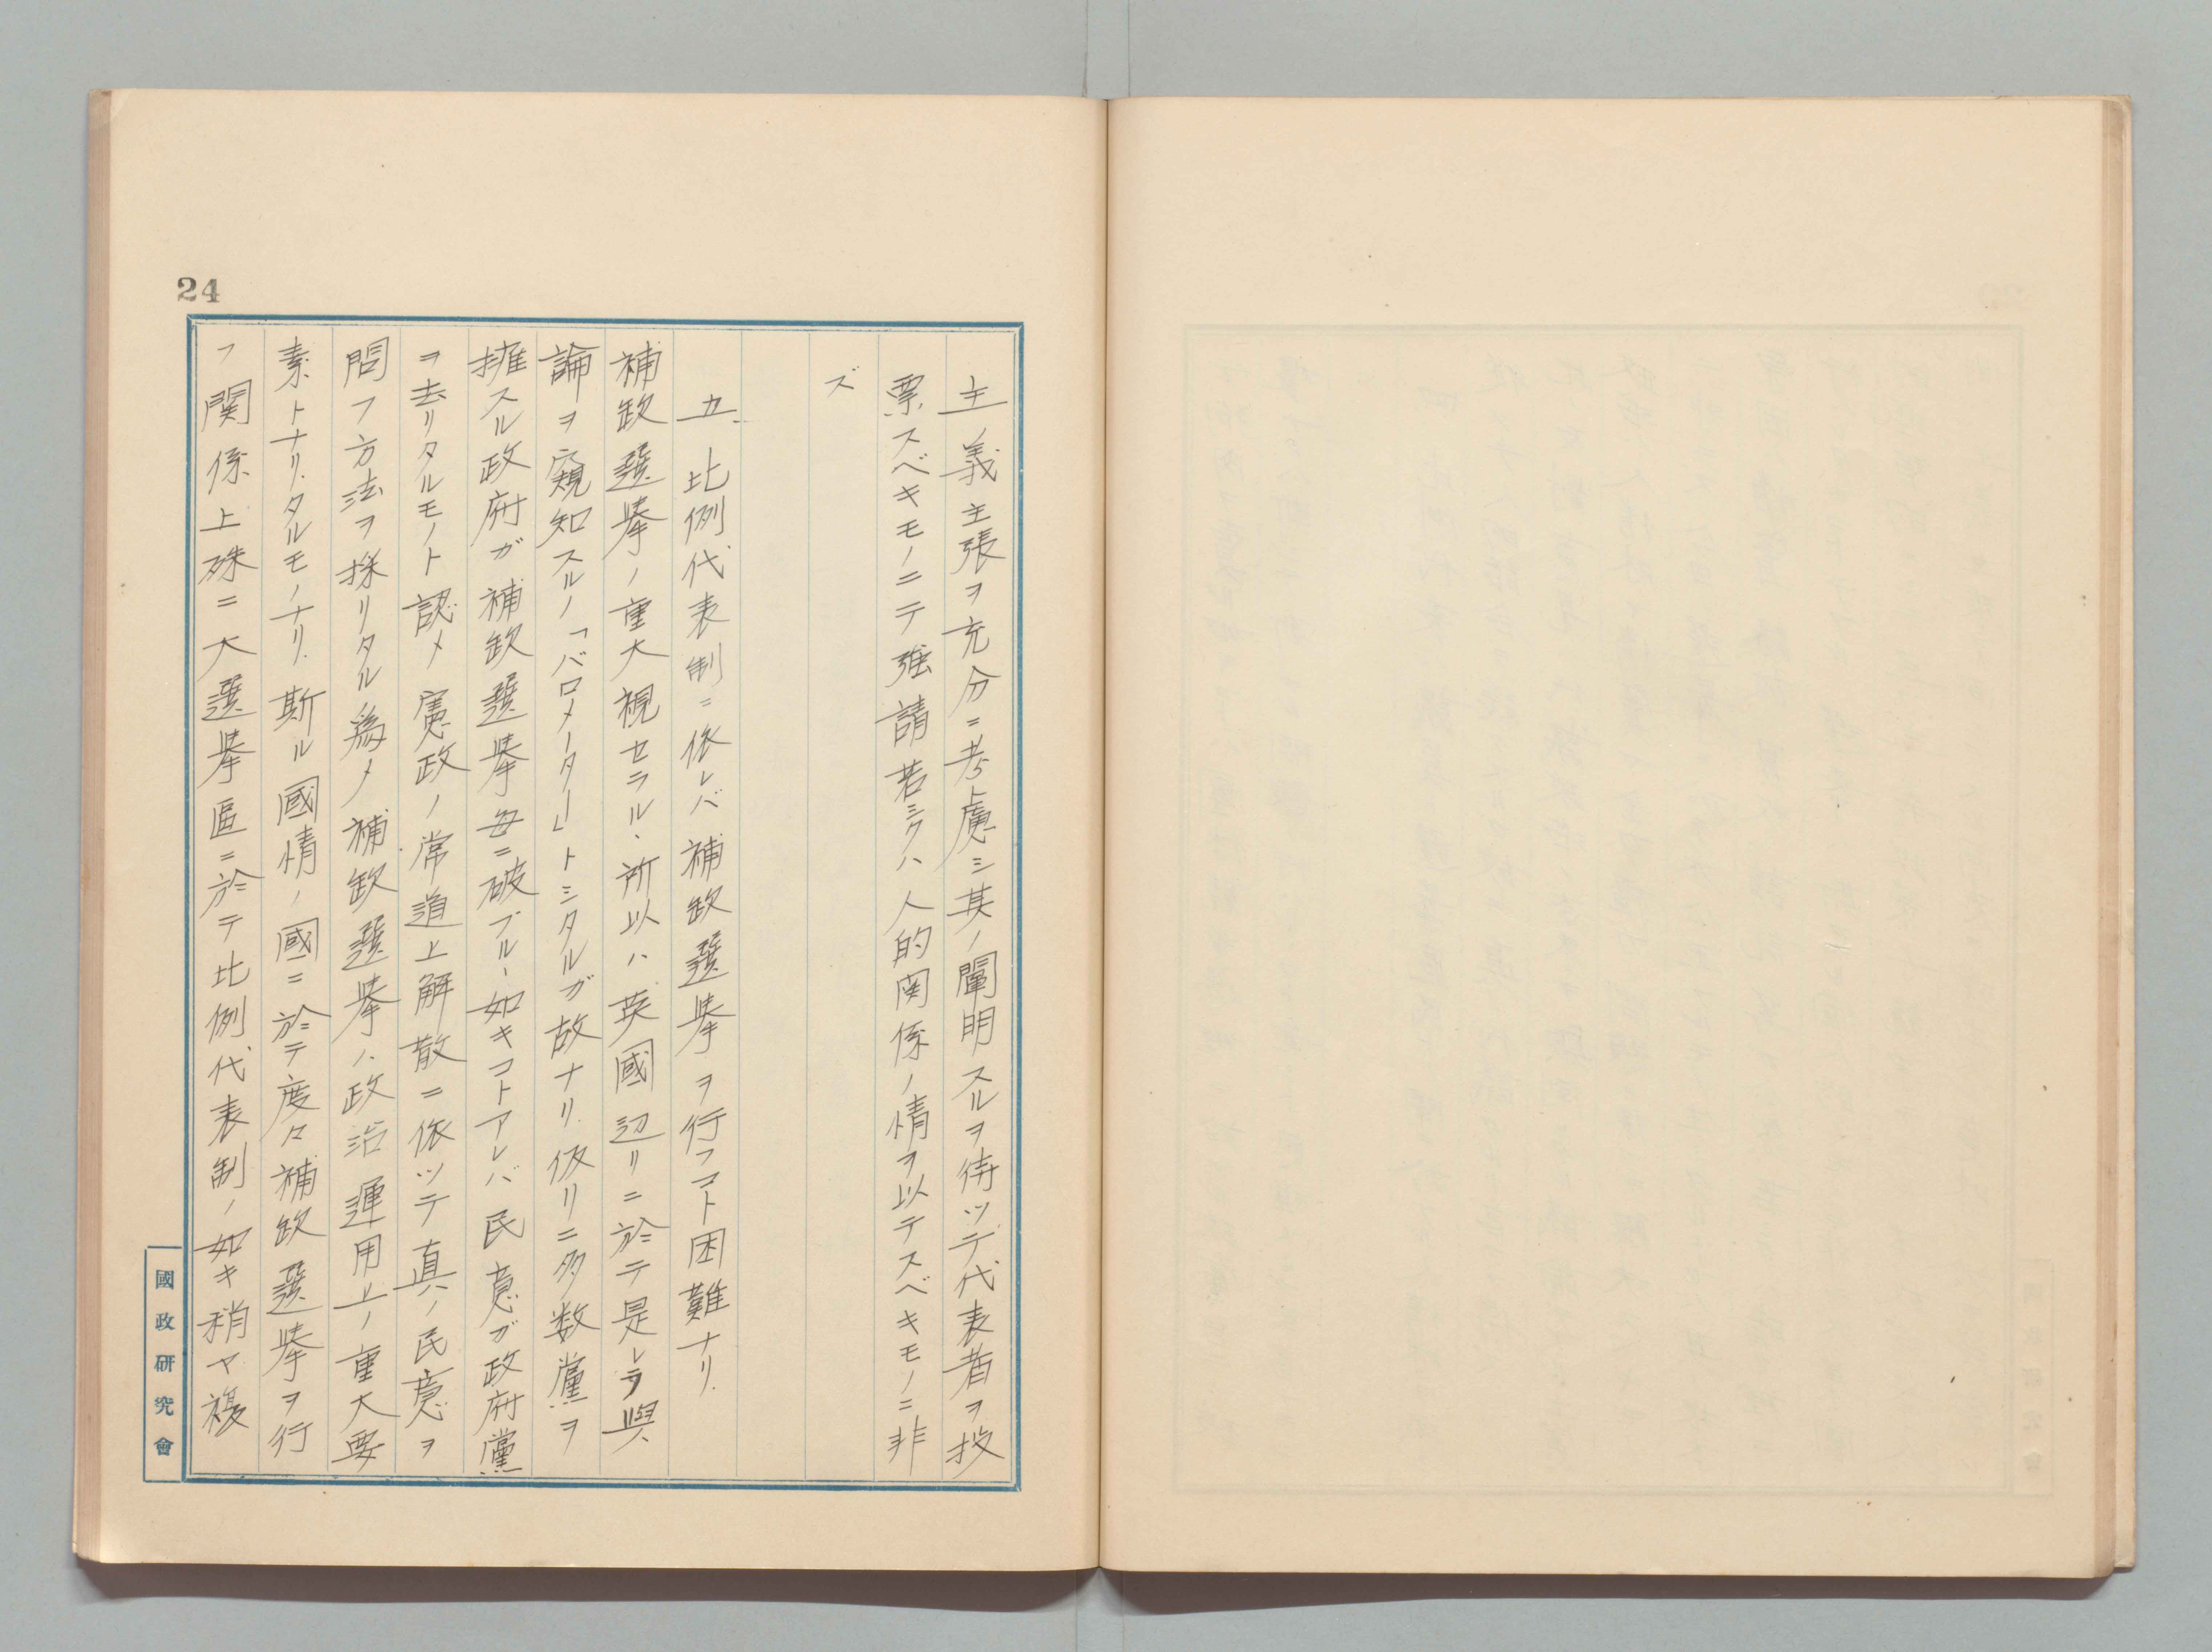 24
主義主張ヲ充分ニ考慮シ其ノ闡明スルヲ待ツテ代表者ヲ投
票スベキモノニテ強請若シクハ人的関係ノ情ヲ以テスベキモノニ非
ズ
五、比例代表制ニ依レバ補欽選挙ヲ行フコト困難ナリ.
補欽選挙ノ重大視セラル、所以ハ英國辺リニ於テ是レヲ輿
論ヲ窺知スルノ「バロメーター」トシタルガ故ナリ.仮リニ多数黨ヲ
擁スル政府ガ補欽選挙毎ニ破ブル、如キコトアレバ民意ガ政府黨
ヲ去リタルモノト認メ憲政ノ常道上解散ニ依ツテ真ノ民意ヲ
問フ方法ヲ採リタル為メ補欽選挙ハ政治運用上ノ重大要
素トナリタルモノナリ.斯ル國情ノ國ニ於テ度々補欽選挙ヲ行
フ関係上殊ニ大選挙區ニ於テ比例代表制ノ如キ稍ヤ複
國政研究會